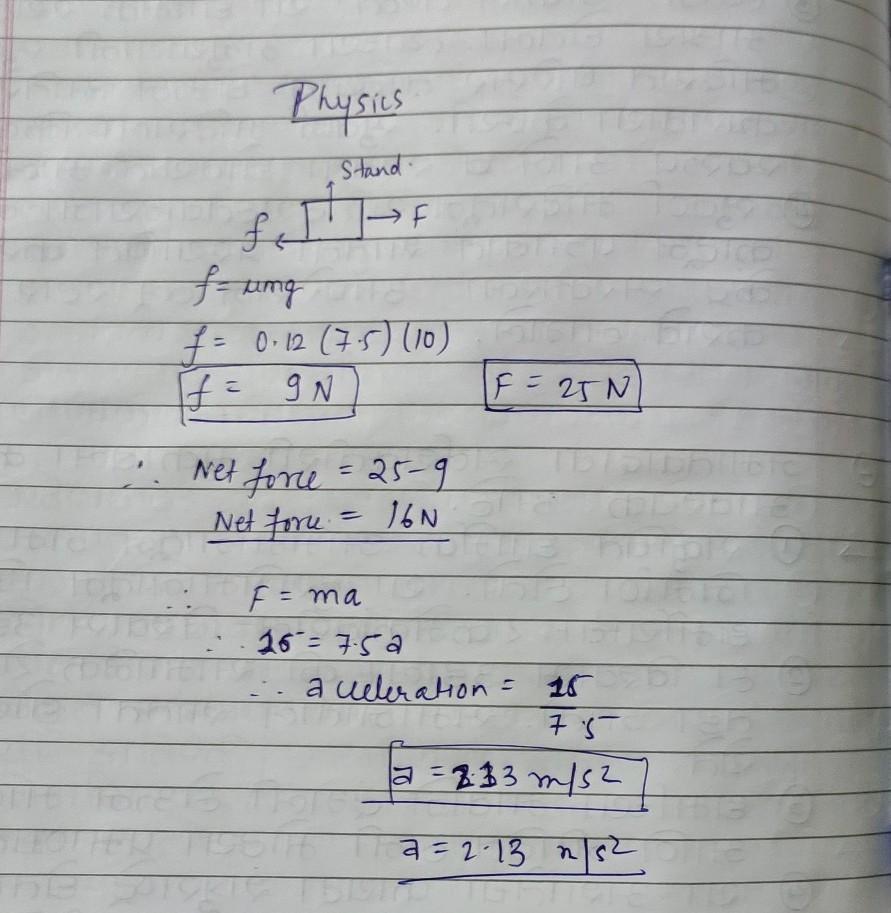 Physics
Stand.
f F
f = μmg
f = 0.12 (7.5) (10)
f = 9 N F = 25 N
∴ Net force = 25-9
Net force = 16N
∴ F = ma
∴ 16 = 7.5a
∴ acceleration = 16
7.5
a = 2.13 m/s²
a = 2.13 m/s²